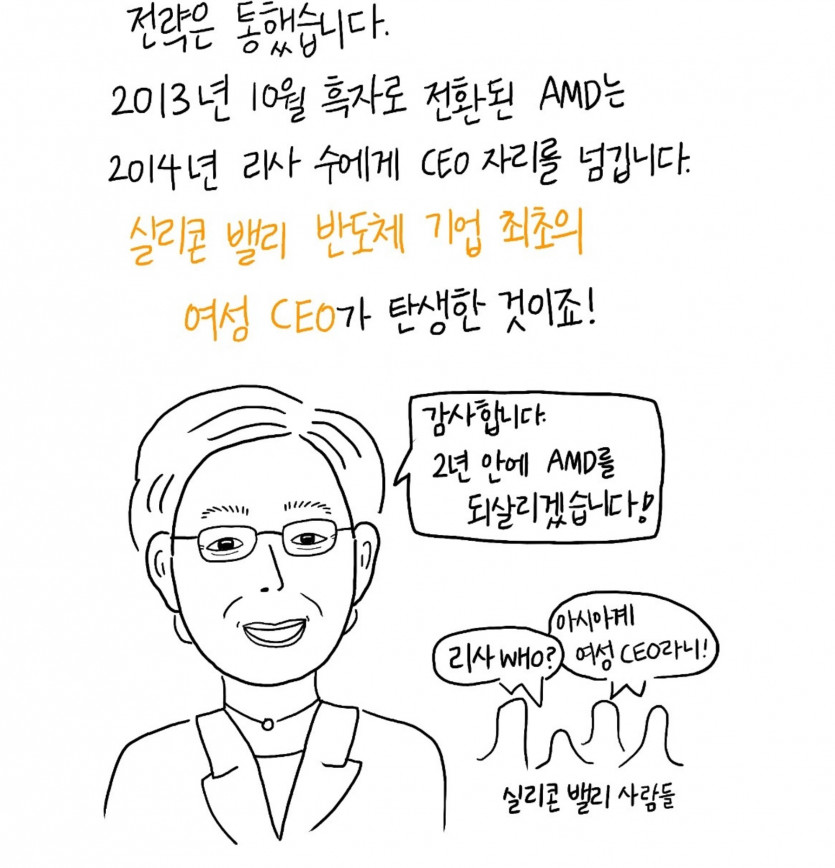 전략은 통했습니다.
2013년 10월 흑자로 전환된 AMD는
2014년 리사 수에게 CEO 자리를 넘깁니다.
실리콘 밸리 반도체 기업 최초의
여성 CEO가 탄생한 것이죠!
감사합니다.
2년 안에 AMD를
되살리겠습니다!
리사 WHO?
아시아계
여성 CEO라니!
실리콘 밸리 사람들